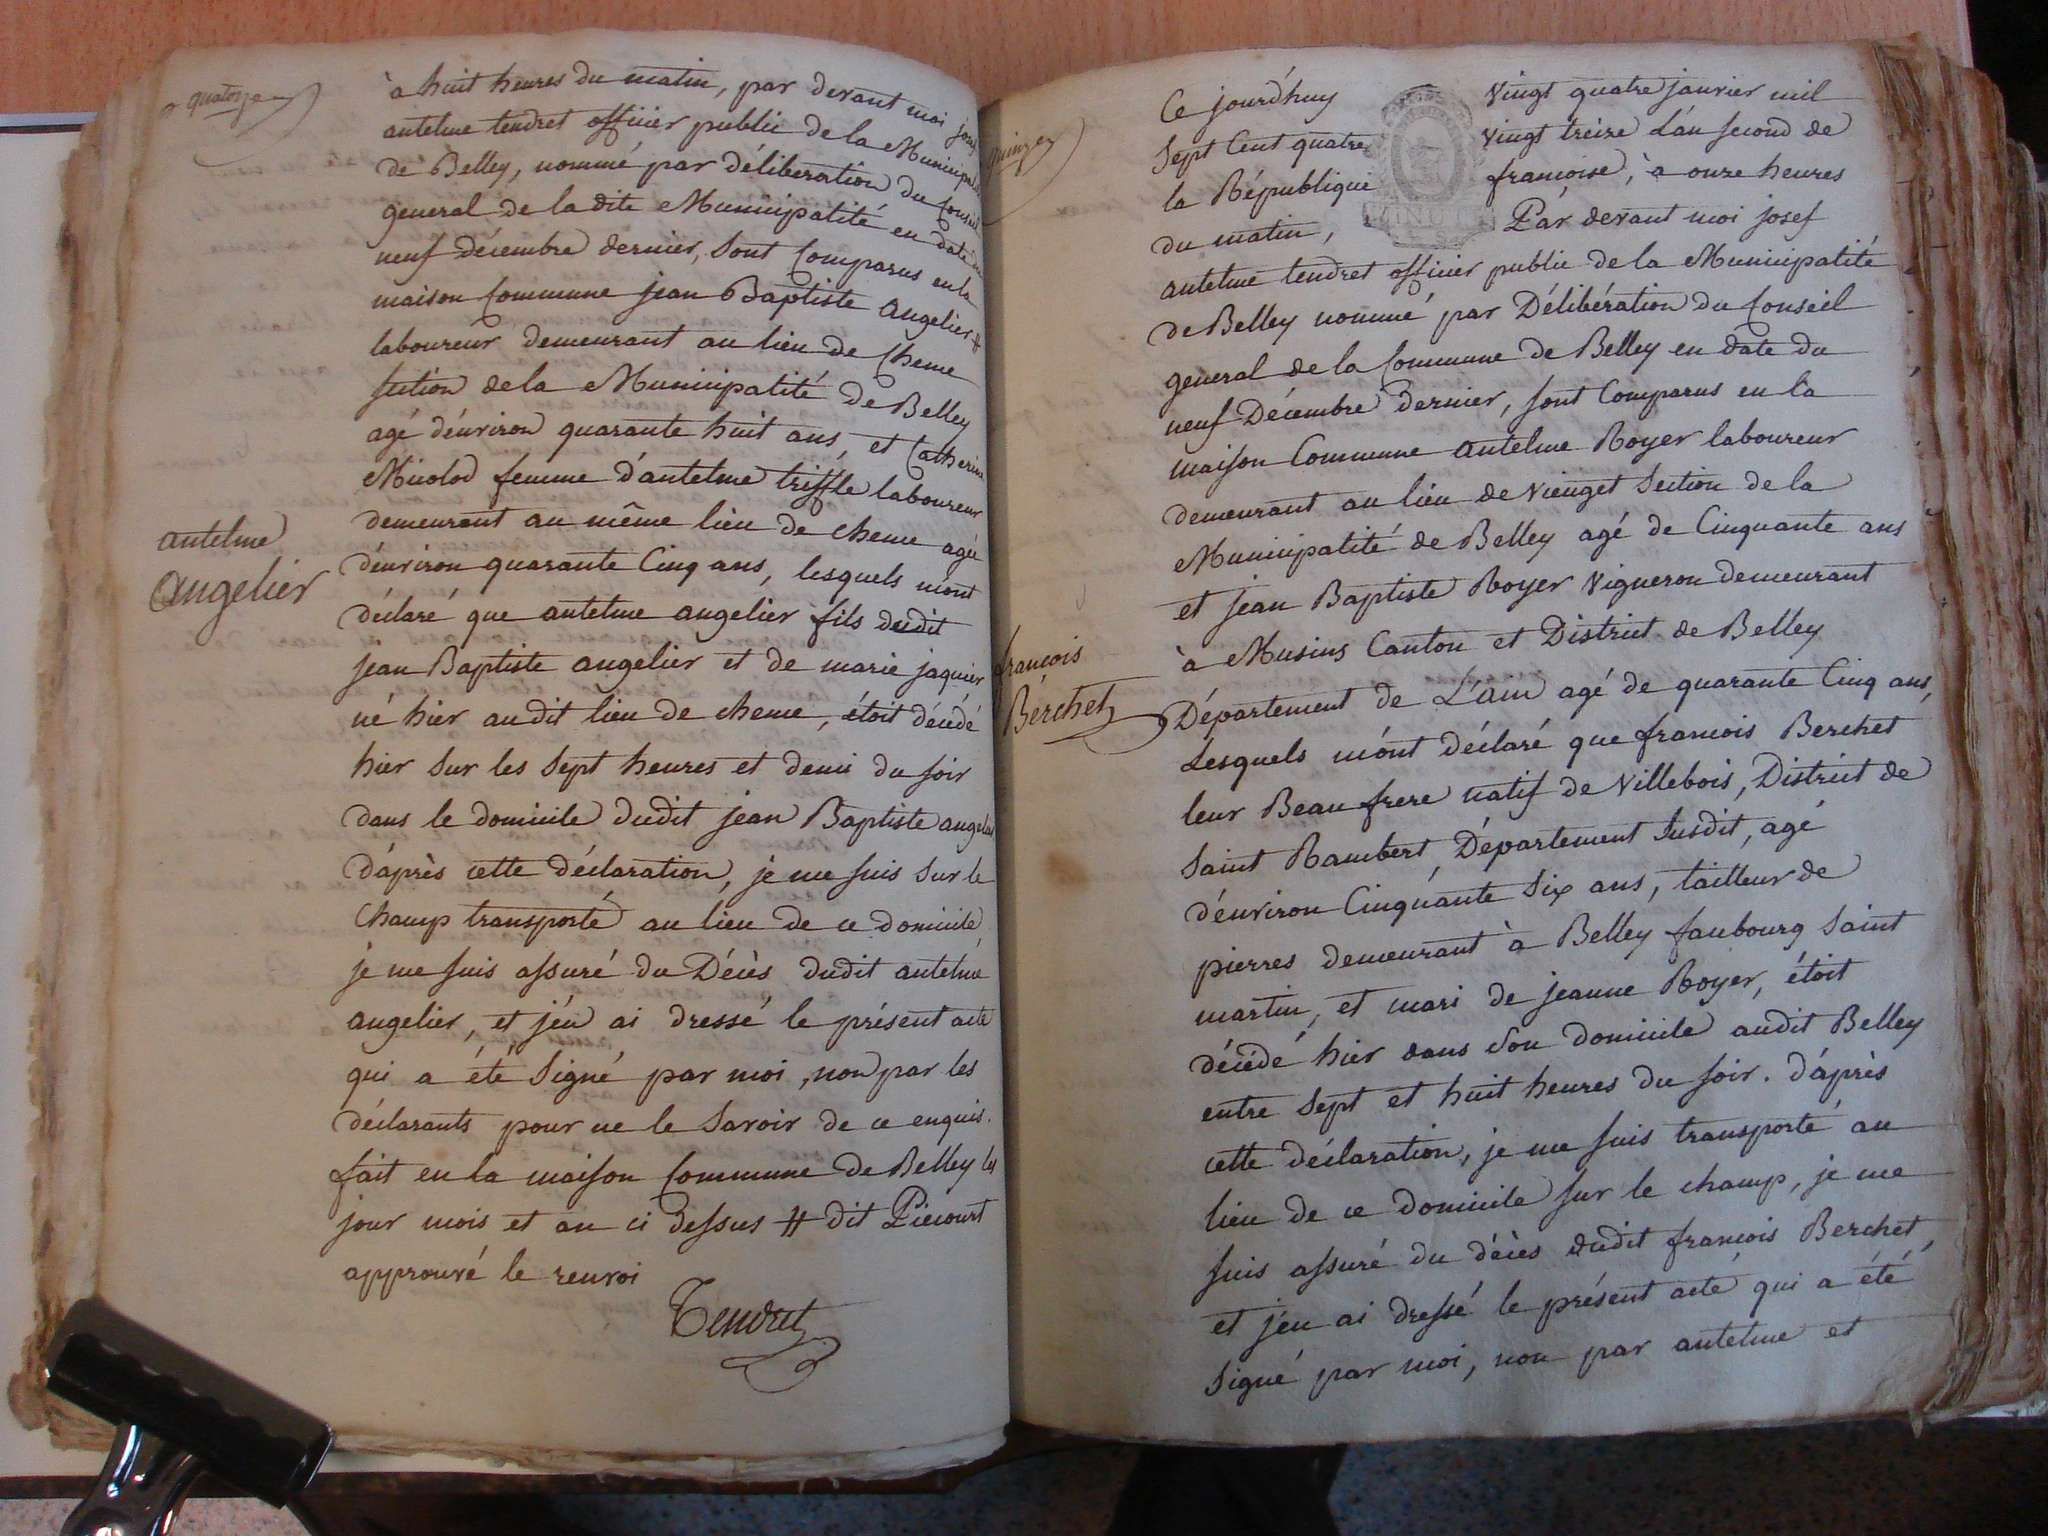 quatorze
à huit heures du matin, par devant moi josef
antelme tendret officier public de la Municipalité
de Belley, nommé par déliberation du Conseil
general de la dite Municipalité en date du
neuf décembre dernier, sont Comparus en la
maison Commune jean Baptiste angelier #
laboureur demeurant au lieu de Cheme
section de la Municipalité de Belley
agé d'environ quarante huit ans, et Catherine
Micolod femme d'antelme triffle laboureur
demeurant au même lieu de cheme agée
d'environ quarante Cinq ans, lesquels m'ont
déclaré que antelme angelier fils dudit
jean Baptiste angelier et de marie jaquier
né hier audit lieu de cheme, étoit décédé
hier sur les sept heures et demi du soir
dans le domicile dudit jean Baptiste angelier
d'après cette déclaration, je me suis sur le
Champ transporté au lieu de ce domicile
je me suis assuré du Décès dudit antelme
angelier, et j'en ai dressé le présent acte
qui a été signé par moi, non par les
déclarants pour ne le savoir de ce enquis.
fait en la maison Commune de Belley les
jour mois et an ci dessus # dit Piécourt
approuvé le renvoi
Tendret
antelme
angelier
quinze
Ce jourd'huy vingt quatre janvier mil
sept Cent quatre vingt treize L'an second de
la République francoise, à onze heures
du matin, Par devant moi josef
antelme tendret officier public de la Municipalité
de Belley nommé par Délibération du Conseil
general de la Commune de Belley en date du
neuf Décembre dernier, sont Comparus en la
maison Commune antelme Royer laboureur
demeurant au lieu de vieuget section de la
Municipalité de Belley agé de Cinquante ans
et jean Baptiste Royer vigneron demeurant
à Musins Canton et District de Belley
Département de L'ain agé de quarante Cinq ans,
Lesquels m'ont déclaré que francois Berchet
leur Beau frere natif de villebois, District de
saint Rambert, Département susdit, agé
d'environ Cinquante six ans, tailleur de
pierres demeurant à Belley faubourg saint
martin, et mari de jeanne Royer, étoit
décédé hier dans son domicile audit Belley
entre sept et huit heures du soir. d'après
cette déclaration, je me suis transporté au
lieu de ce domicile sur le champ, je me
suis assuré du décès dudit francois Berchet,
et j'en ai dressé le présent acte qui a été
signé par moi, non par antelme et
francois
Berchet